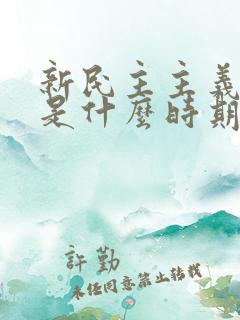 新民主主義
是什麼時期
許勤
未經同意禁止轉載